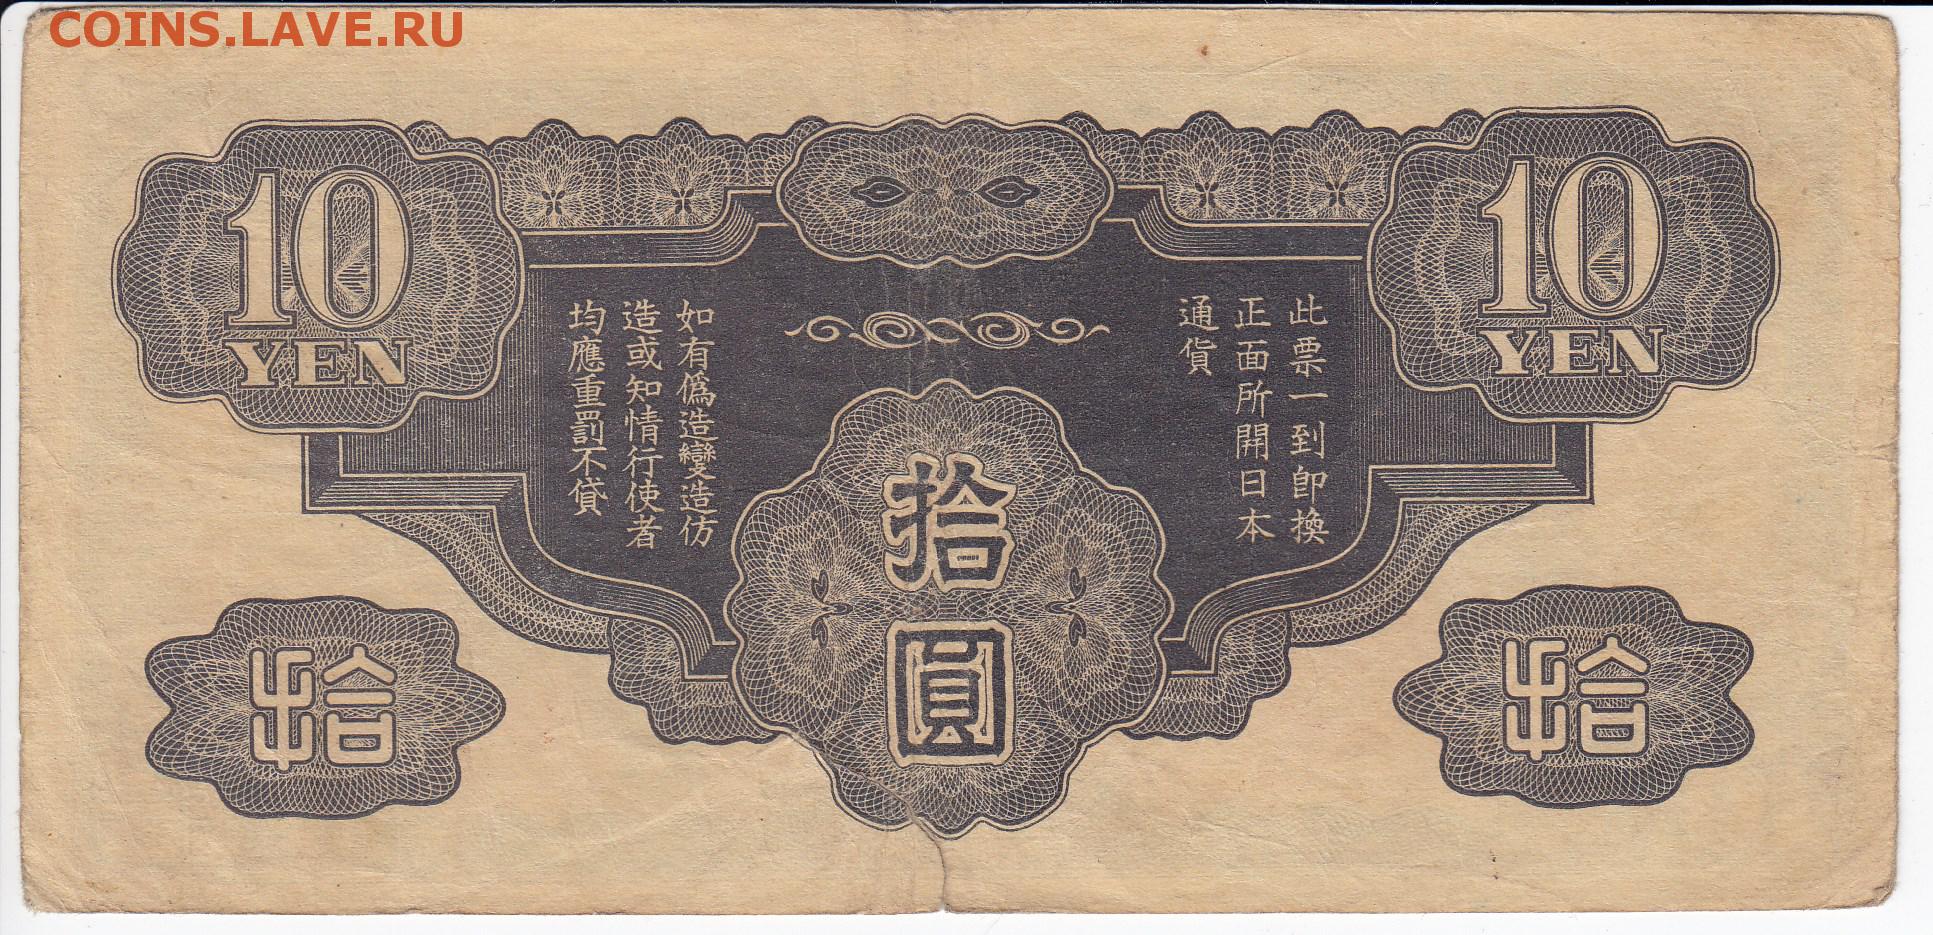 COINS.LAVE.RU
10
YEN
10
YEN
此票一到卽換
正面所開日本
通貨
如有僞造變造仿
造或知情行使者
均應重罰不貸
拾
圓
拾
拾